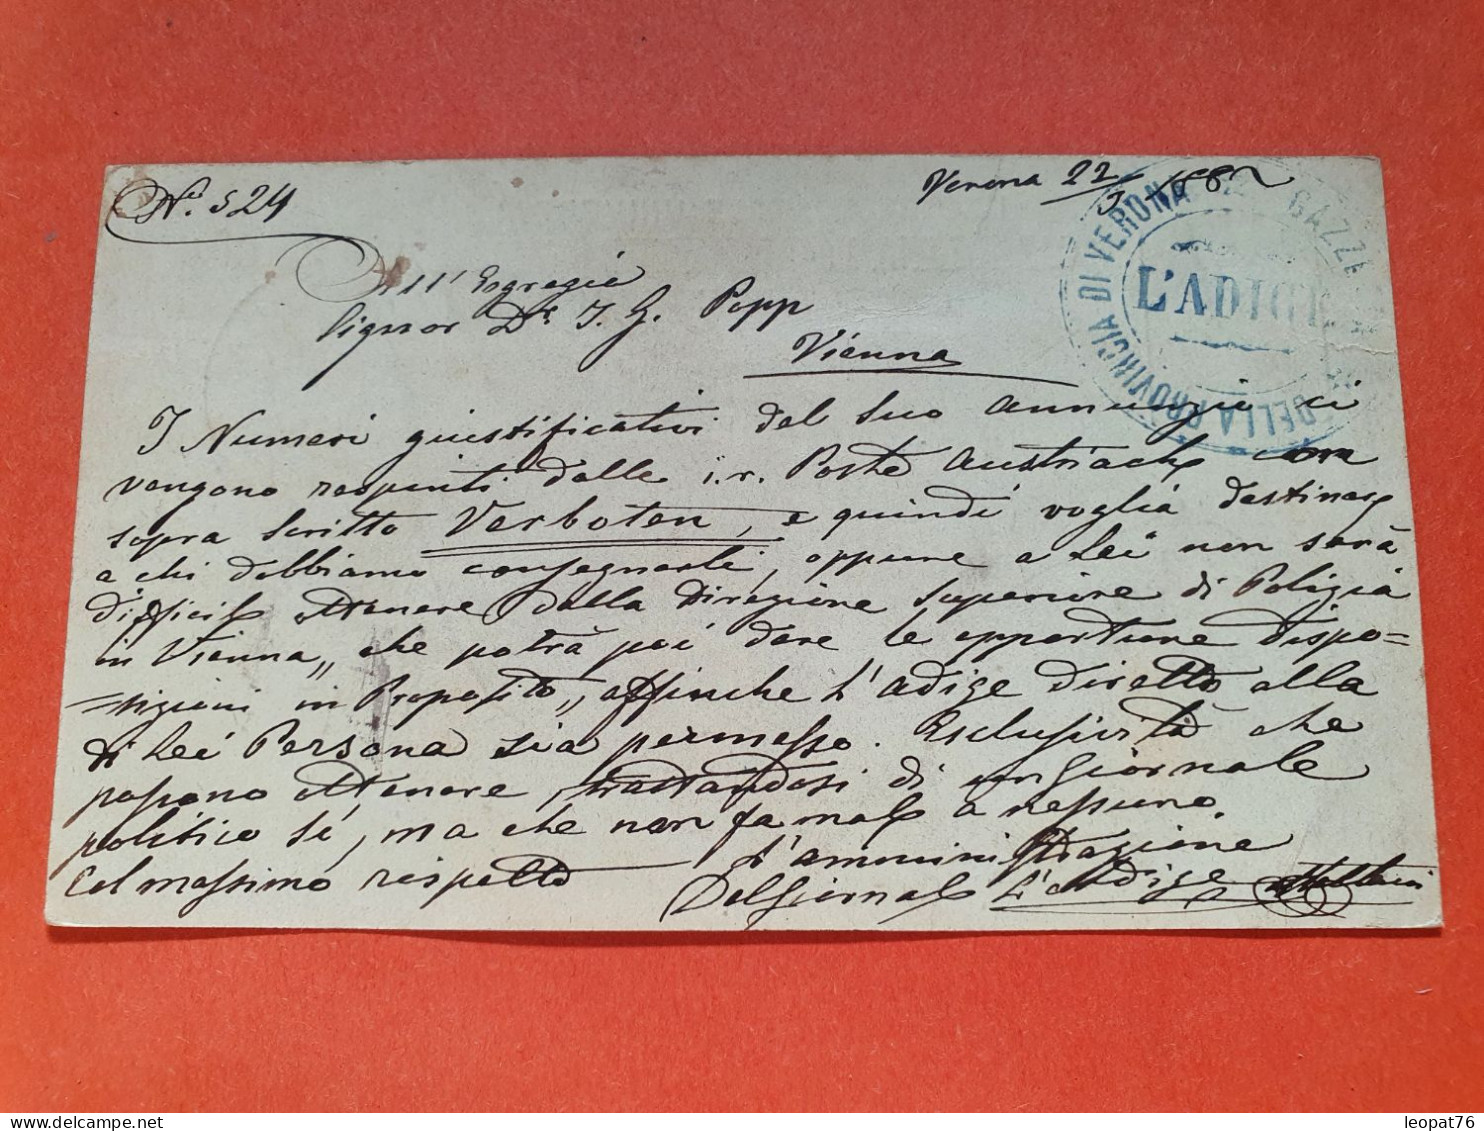 N.º 524
Verona 22/5 1882
GAZZE
DELLA PROVINCIA DI VERONA
L'ADIGE
All' Egregio
Signor Dr. J. G. Popp
Vienna
I Numeri giustificativi del suo annunzio ci
vengono respinti dalle i.r. Poste Austriache con
sopra scritto Verboten, e quindi voglia destinare
a chi dobbiamo consegnarli, oppure a Lei non sarà
difficile ottenere dalla Direzione superiore di Polizia
in Vienna,, che potrà poi dare le opportune dispo=
=sizioni in Proposito,, affinche l'Adige diretto alla
di Lei Persona sia permesso. Esclusività che
possono ottenere, trattandosi di un Giornale
politico si, ma che non fa male a nessuno.
Col massimo rispetto
L'amministrazione
Del Giornale L'Adige
leopat76